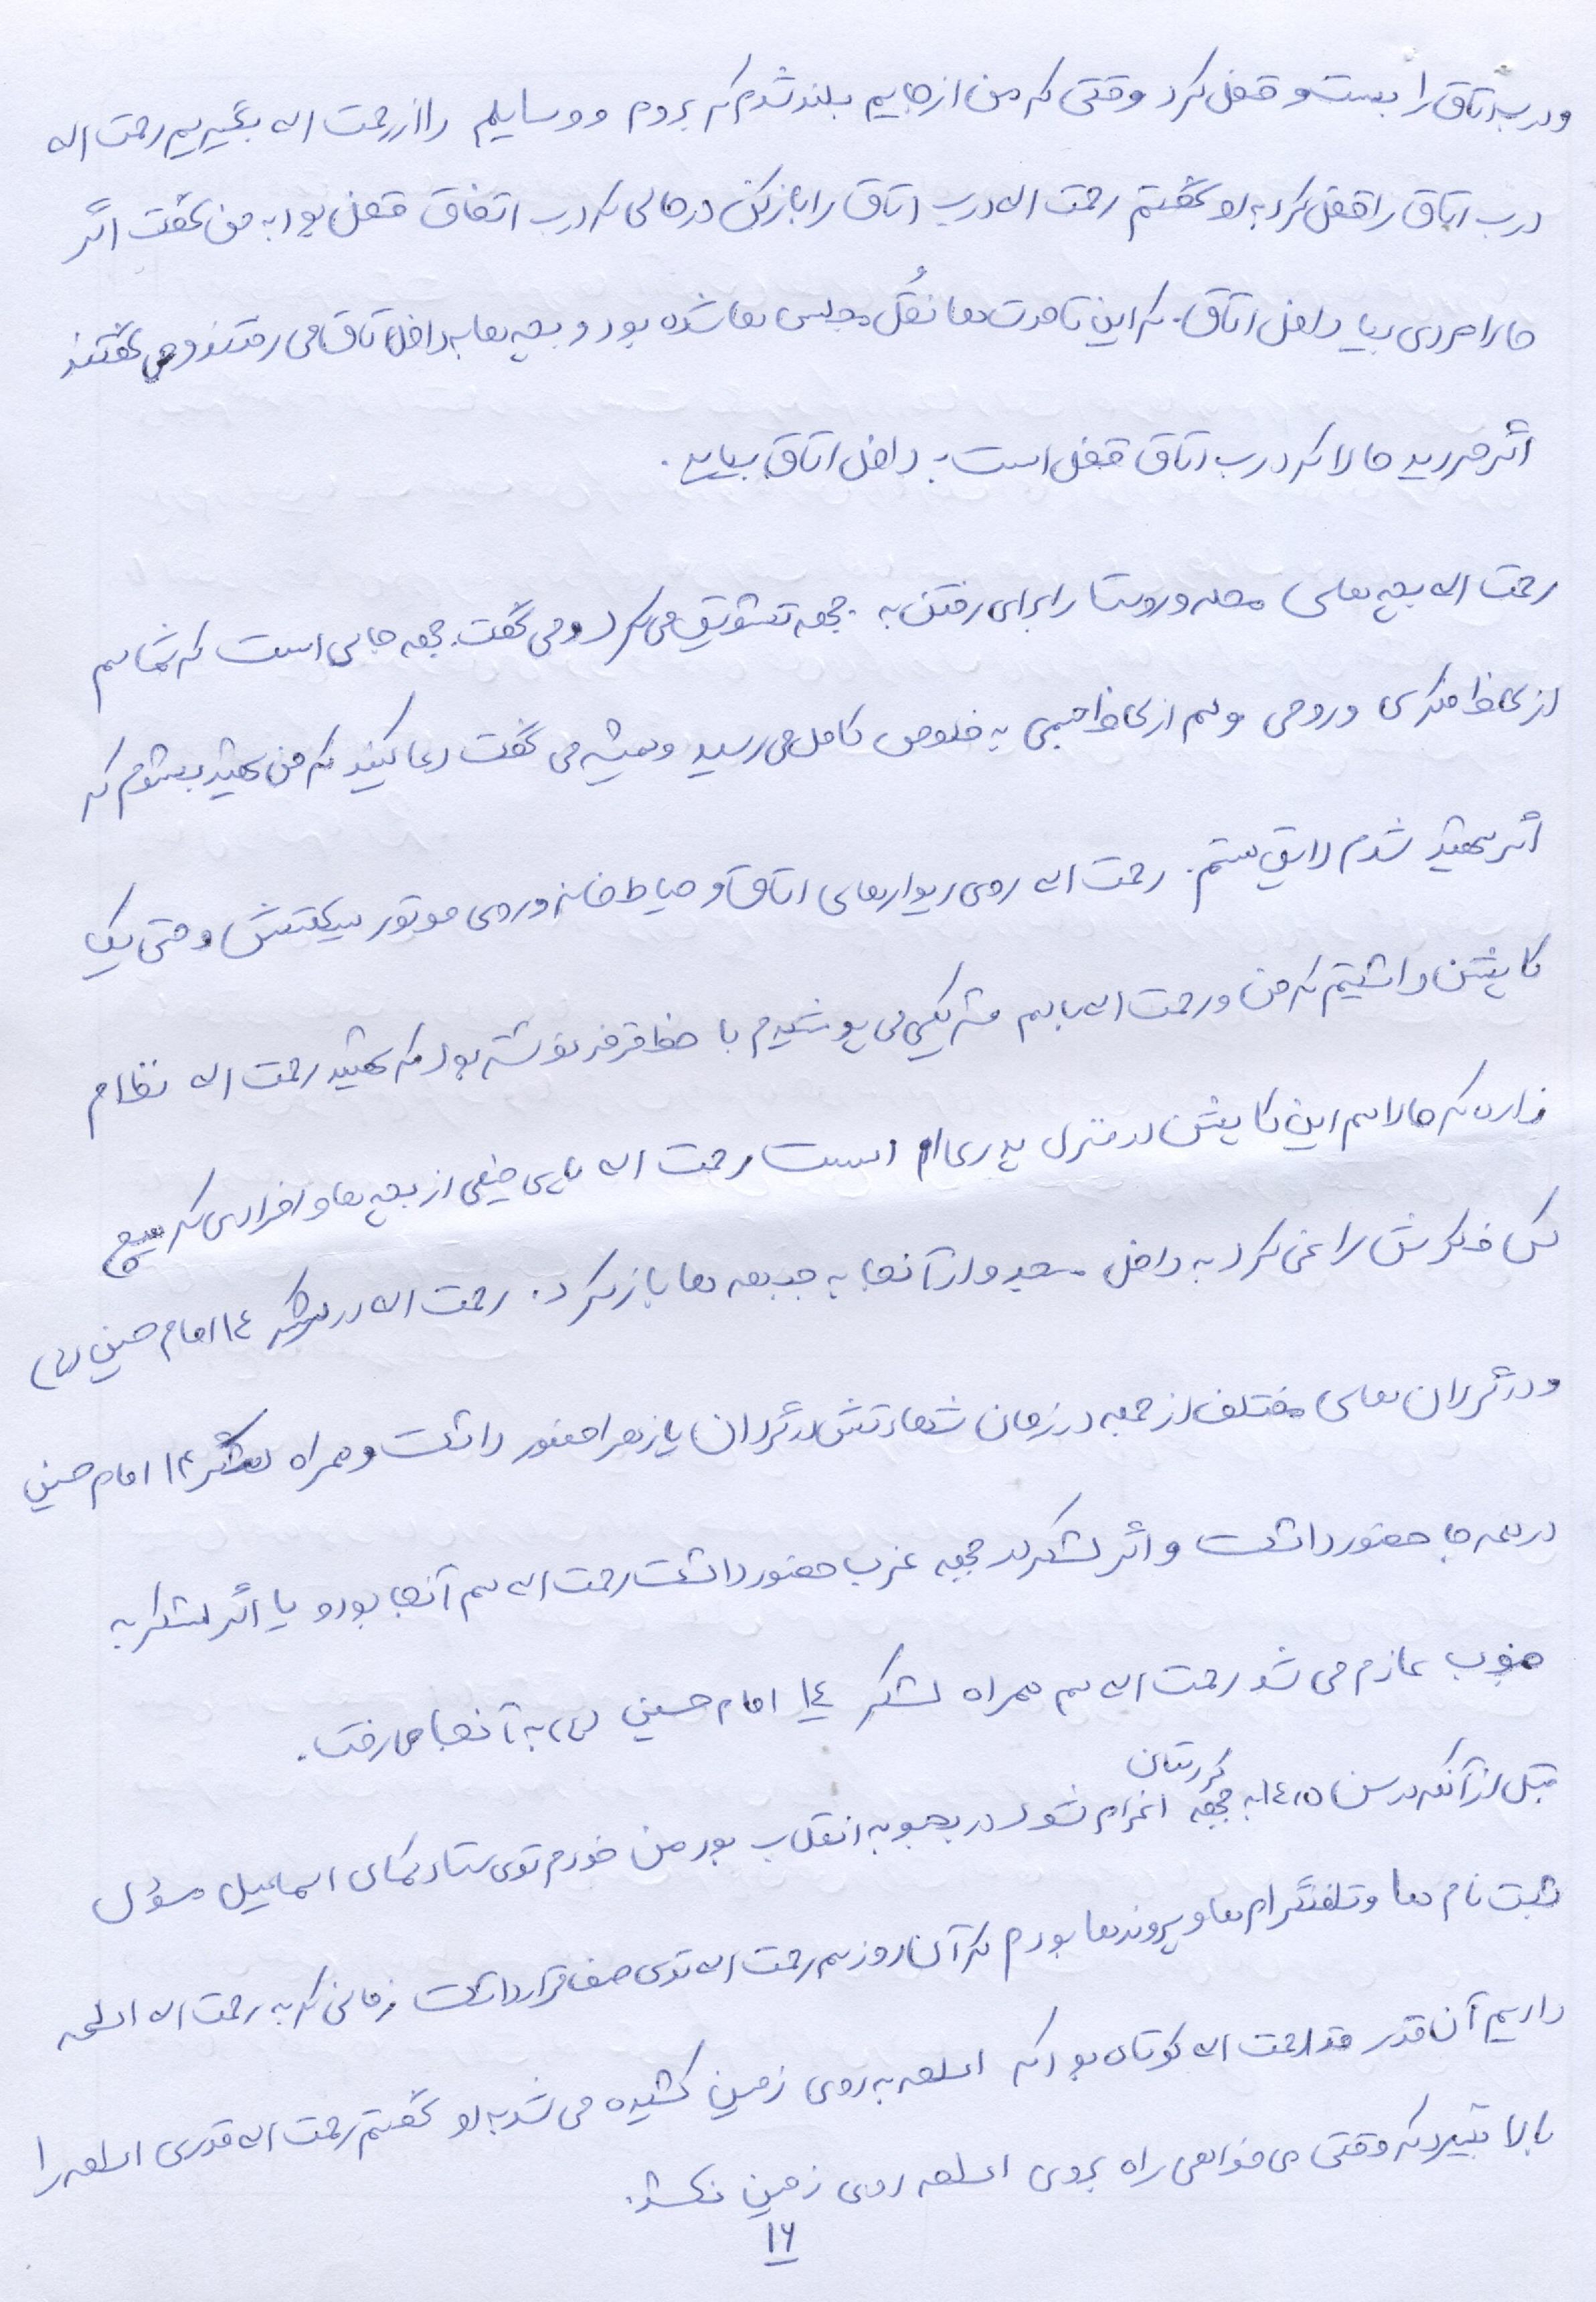 و درب اتاق را بست و قفل کرد وقتی که من از جایم بلند شدم که بروم و وسایلم را از رحمت اله بگیریم رحمت اله
درب اتاق را قفل کرد به او گفتم رحمت اله درب اتاق را باز کن در حالی که درب اتفاق قفل بود به من گفت اگر
ما را مردی بیا داخل اتاق. که این تا مدت ها نقُل مجلس ما شده بود و بچه ها به داخل اتاق می رفتند و می گفتند
اگر مردید حالا که درب اتاق قفل است به داخل اتاق بیایید.
رحمت اله بچه های محله و روستا را برای رفتن به جبهه تشویق می کرد و می گفت جبهه جایی است که شما هم
از لحاظ فکری و روحی و هم از لحاظ جسمی به خلوص کامل می رسید و همیشه می گفت دعا کنید که من شهید بشوم که
اگر شهید شدم لایق هستم. رحمت اله روی دیوارهای اتاق و حیاط خانه و روی موتور سیکلتش و حتی یک
کاپشن داشتیم که من و رحمت اله با هم شریکی می پوشیدیم با خط قرمز نوشته بود که شهید رحمت اله نظام
زاده که حالا هم این کاپشن در منزل پدری ام است رحمت اله پای خیلی از بچه ها و افرادی که هیچ
کس فکرش را نمی کرد به داخل مسجد و از آنجا به جبهه ها باز کرد. رحمت اله در لشکر ١٤ امام حسین (ع)
و در گردان های مختلف از جمله در زمان شهادتش در گردان یا زهرا حضور داشت و همراه لشکر ١٤ امام حسین
در همه جا حضور داشت و اگر لشکر در جبهه غرب حضور داشت رحمت اله هم آنجا بود و یا اگر لشکر به
جنوب عازم می شد رحمت اله هم همراه لشکر ١٤ امام حسین (ع) به آنجا می رفت.
قبل از آنکه در سن ١٤،٥ به جبهه کردستان اعزام شود در بحبوبه انقلاب بود من خودم توی ستاد اسماعیل مسؤل
ثبت نام ها و تلفنگرام ها و پرونده ها بودم که آن روز هم رحمت اله توی صف قرار داشت زمانی که به رحمت اله اسلحه
داریم آن قدر قد رحمت اله کوتاه بود که اسلحه به روی زمین کشیده می شد به او گفتم رحمت اله قدری اسلحه را
بالا بگیر که وقتی می خواهی راه بروی اسلحه روی زمین نکشد.
١٦